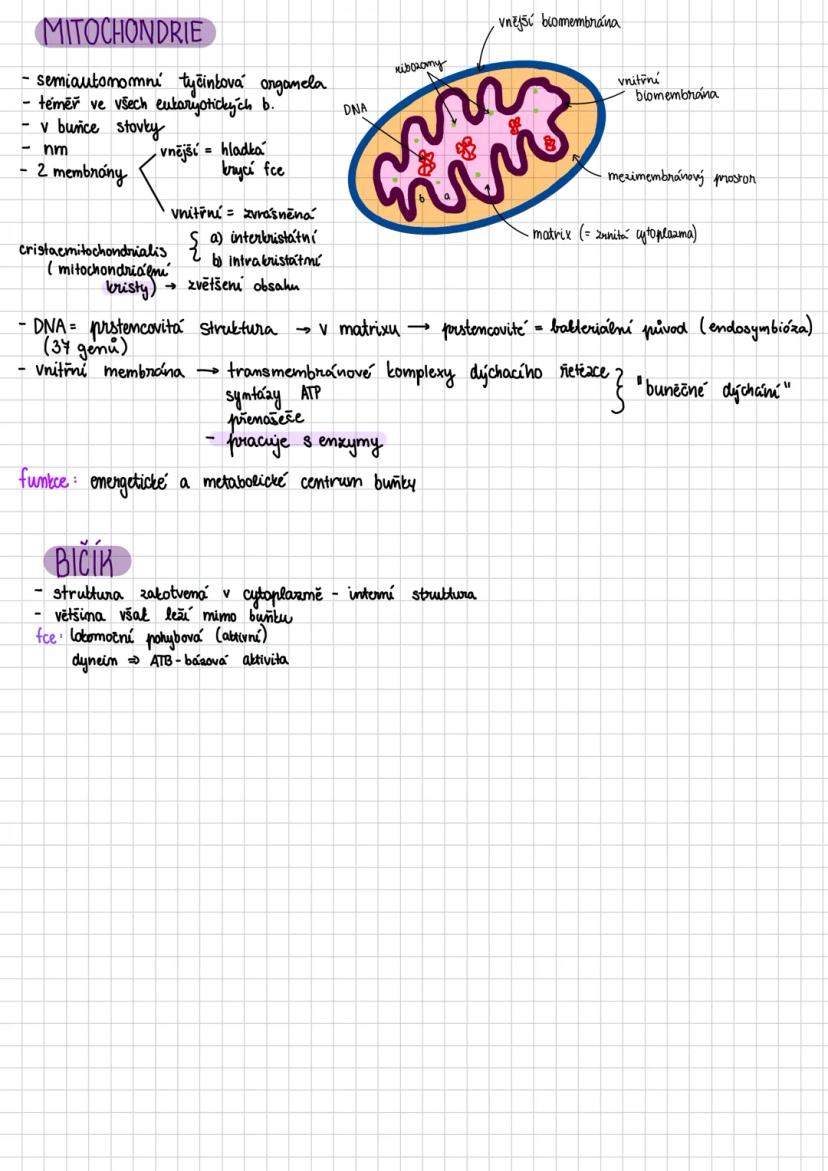 MITOCHONDRIE
- semiautonomní tyčinková organela
- téměř ve všech eukaryotických b.
- v buňce stovky
- nm
- 2 membrány
vnější = hladká
krycí fce
vnitřní = zvrásněná
{ a) interkristátní
b) intrakristátní
cristaemitochondrialis
(mitochondriální
kristy) → zvětšení obsahu
vnější biomembrána
ribozomy
DNA
vnitřní
biomembrána
mezimembránový prostor
b a
matrix (= zrnitá cytoplazma)
- DNA = prstencovitá struktura → v matrixu → prstencovité = bakteriální původ (endosymbióza)
(37 genů)
- vnitřní membrána → transmembránové komplexy dýchacího řetězce } "buněčné dýchání"
syntázy ATP
přenašeče
- pracuje s enzymy
funkce: energetické a metabolické centrum buňky
BIČÍK
- struktura zakotvená v cytoplazmě - interní struktura
- většina však leží mimo buňku
fce: lokomoční pohybová (aktivní)
dynein ⇒ ATB-bázová aktivita